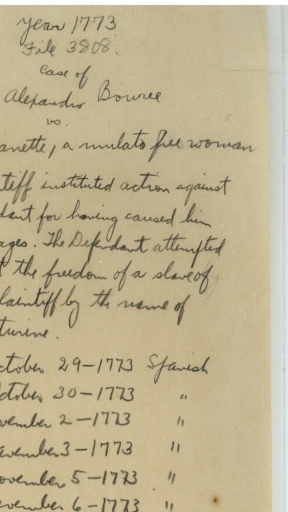 Year 1773
File 3808.
Case of
Alexandro Bouree
vs.
anette, a mulato free woman
tiff instituted action against
dant for having caused him
ages. The Defendant attempted
the freedom of a slave of
laintiff by the name of
turine.
ctober 29-1773 Spanish
ctober 30-1773 "
vember 2-1773 "
ovember 3-1773 "
ovember 5-1773 "
ovember 6-1773 "